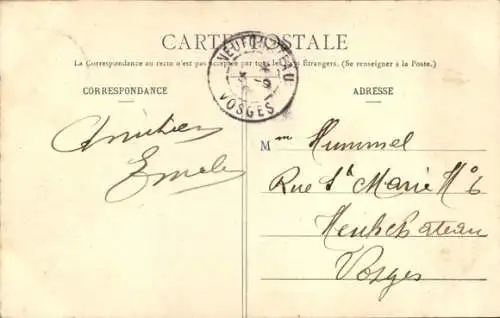 CARTE POSTALE
La Correspondance au recto n'est pas acceptée par tous les Pays Étrangers. (Se renseigner à la Poste.)
NEUFCHATEAU
VOSGES
CORRESPONDANCE
ADRESSE
Amitiés
M me Hummel
Rue Ste Marie No 6
Neufchateau
Vosges